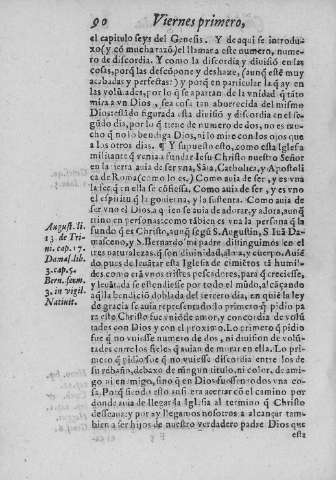 90 Viernes primero,
el capitulo seys del Genesis. Y de aqui se introdu-
xo (y cō mucha razō) el llamar a este numero, nume-
ro de discordia. Y como la discordia y diuisiō en las
cosas, porq̄ las descōpone y deshaze, (aunq̄ estē muy
acabadas y perfectas:) y porq̄ en particular la q̄ ay en
las volūtades, por lo q̄ se apartan de la vnidad q̄ tāto
mira a vn Dios, sea cosa tan aborrecida del mismo
Dios: està dō figurada esta diuisiō y discordia en el se-
gūdo dia, por lo q̄ tiene de numero de dos, no es mu-
cho q̄ no lo bendiga Dios, ni lo mire con los ojos que
a los otros dias. ¶ Y supuesto esto, como esta Iglesia
militante q̄ venia a fundar Iesu Christo nuestro Señor
en la tierra auia de ser vna, Sāta, Catholica, y Apostoli
ca de Roma (como lo es,) Como auia de ser, y es vna
la fee q̄ en ella se cōfiessa, Como auia de ser, y es vno
el espiritu q̄ la gouierna, y la sustenta. Como auia de
ser vno el Dios a quien se auia de adorar, y adora, aunq̄
trino en personas: como auia de ser vna la persona q̄ la
fundò q̄ es Christo, aunq̄ segū S. Augustin, S. Iuā Da-
masceno, y S. Bernardo mi padre distinguimos en el
tres naturalezas, q̄ son diuinidad, alma, y cuerpo. Auiē
do, pues de leuātar esta Iglesia de cimiētos tā humil-
des como erā vnos tristes pescadores, para q̄ creciesse,
y leuātada se estendiesse por todo el mūdo, alcāçando
aq̄lla bendiciō doblada del tercero dia, en quiē la ley
de gracia se auia representado: lo primero q̄ pidio pa
ra esto Christo fue vnidad de amor, y concordia de volū
tades con Dios y con el proximo. Lo primero q̄ pidio
fue q̄ no vuiesse numero de dos, ni diuision de volun-
tades entre los fieles q̄ auian de morar en ella. Lo pri-
mero q̄ pidio fue q̄ no vuiesse discordia entre los de
su rebaño, debaxo de ningun titulo, ni color, de ami-
go ni enemigo, sino q̄ en Dios fuessen todos vna co-
sa. Porq̄ siendo esto ansi era acertar cō el camino por
donde auia de llegar la Iglesia al termino q̄ Christo
desseaua: y por ay llegamos nosotros a alcançar tam-
bien a ser hijos de nuestro verdadero padre Dios que
esta
August. li.
13. de Tri-
ni. cap. 17.
Damas. lib.
3. cap. 5.
Bern. serm.
3. in vigil.
Natiuit.